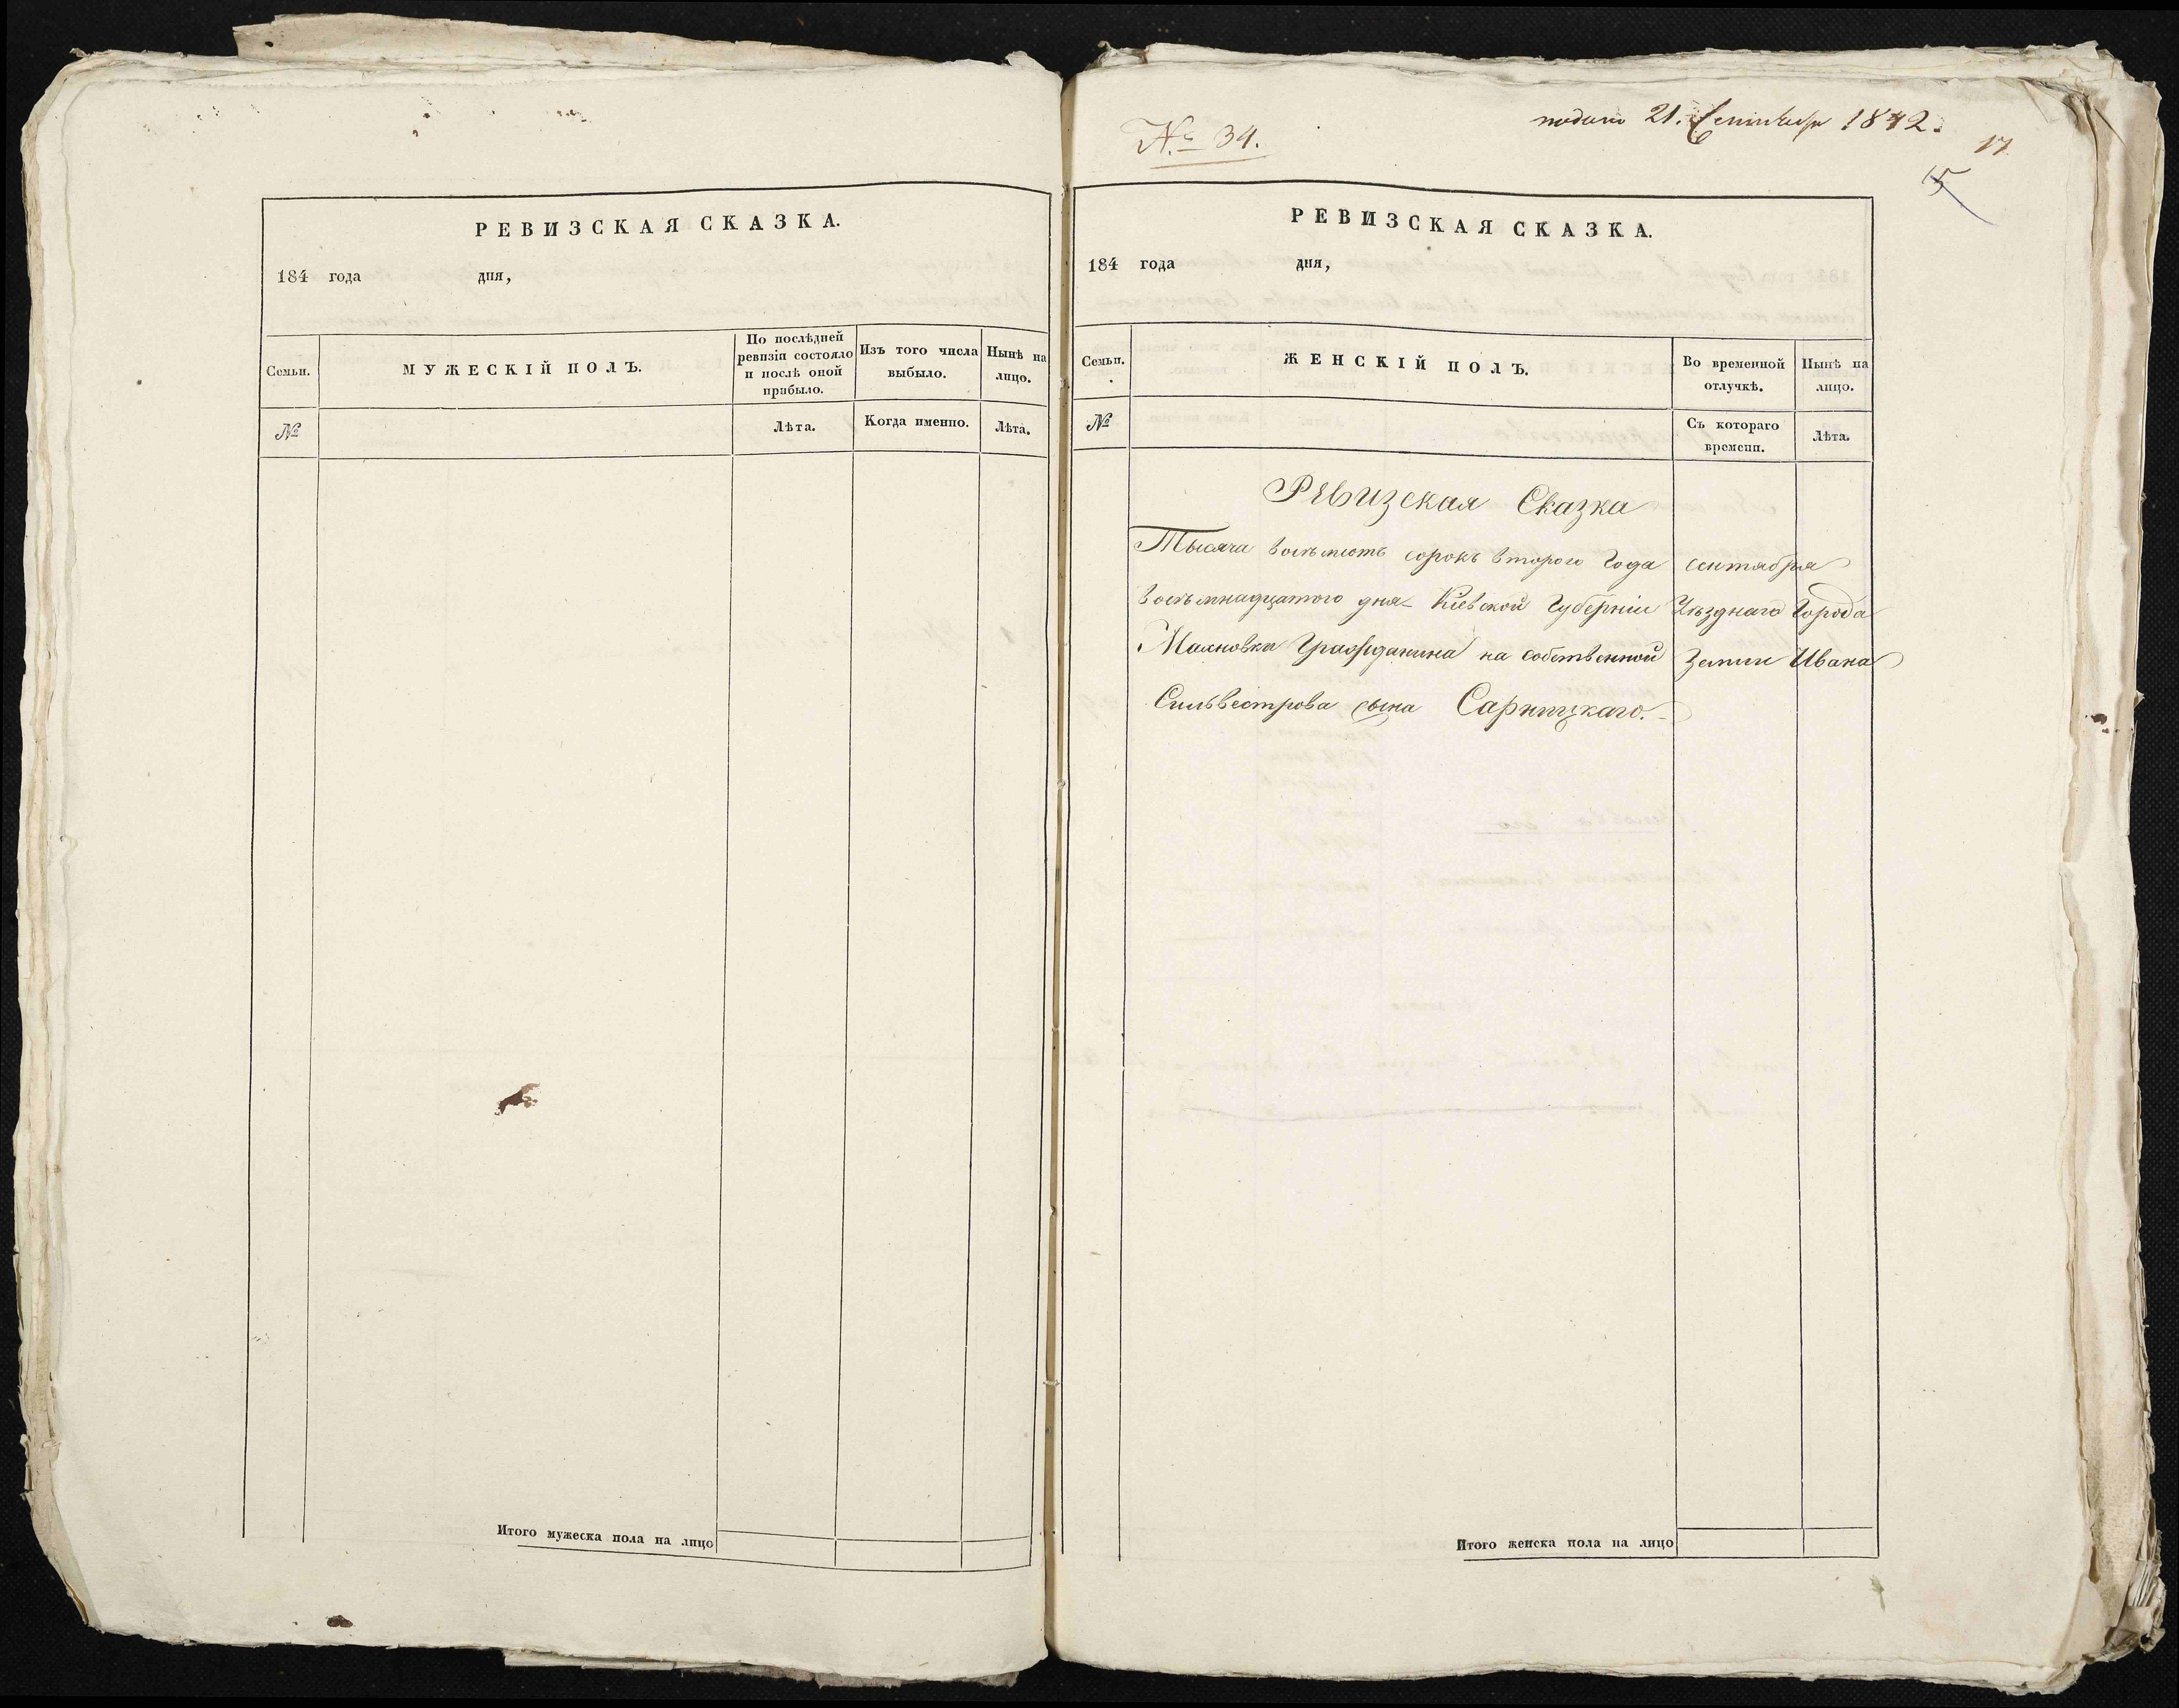 РЕВИЗСКАЯ СКАЗКА.
184 года дня,
Семьи.
МУЖЕСКІЙ ПОЛЪ.
По послѣдней ревизіи состояло и послѣ оной прибыло.
Изъ того числа выбыло.
Нынѣ на лицо.
№
Лѣта.
Когда именно.
Лѣта.
Итого мужеска пола на лицо
№ 34.
подана 21. Сентября 1842.
17
15
РЕВИЗСКАЯ СКАЗКА.
184 года дня,
Семьи.
ЖЕНСКІЙ ПОЛЪ.
Во временной отлучкѣ.
Нынѣ на лицо.
№
Съ котораго времени.
Лѣта.
Ревизская Сказка
Тысяча восѣмсотъ сорокъ второго Года сентября
восѣмнадцатого дня Кіевской Губерніи Уѣзднаго Города
Махновки Гражданина на собственной Земли Ивана
Сильвестрова сына Сарницкаго.
Итого женска пола на лицо